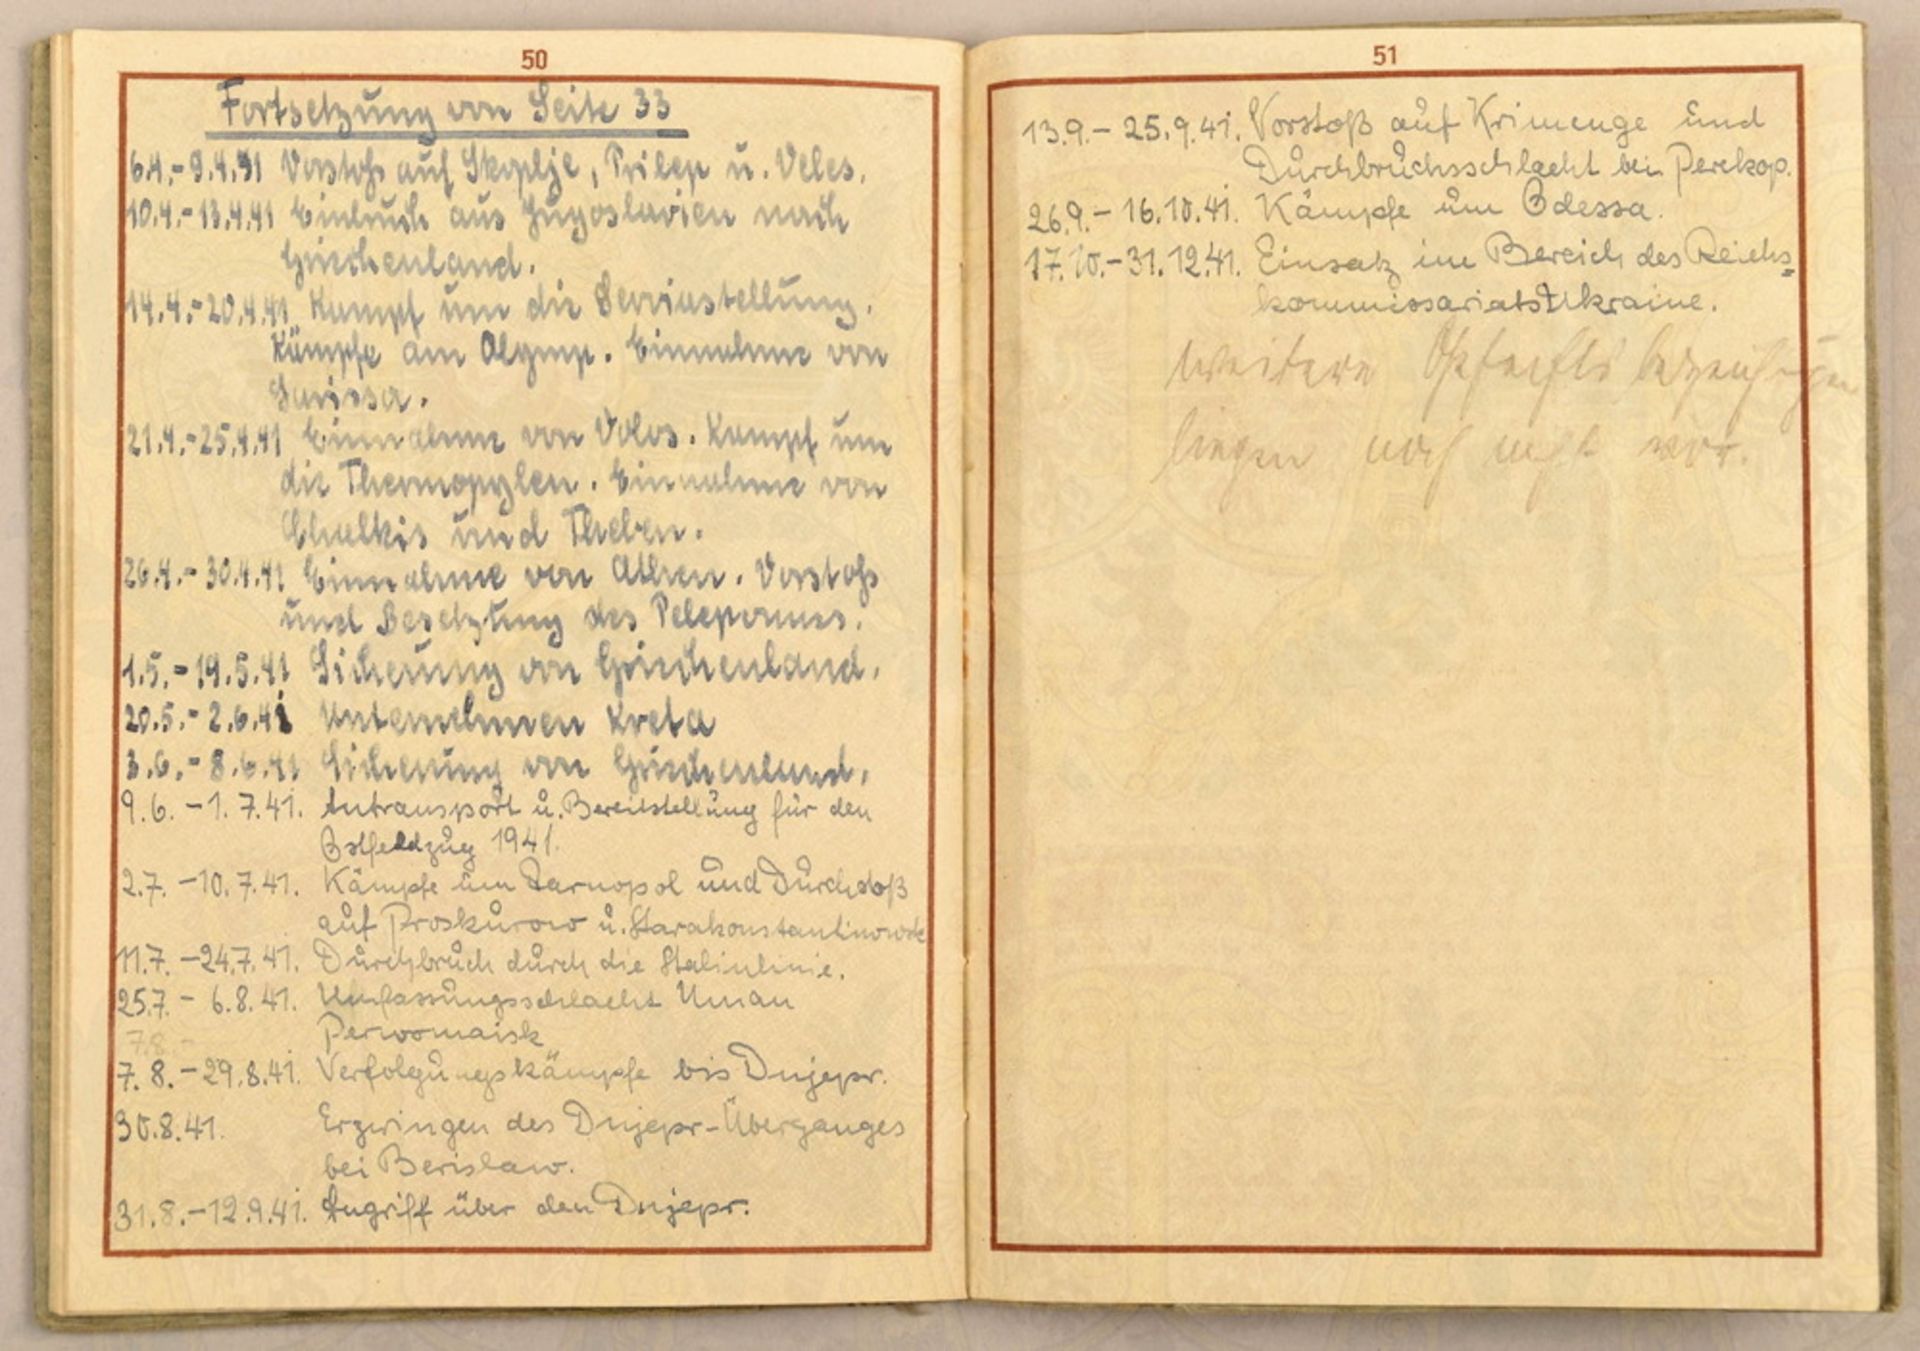 50
Fortsetzung von Seite 33
6.4.- 9.4.41 Vorstoß auf Skoplje, Prilep u. Veles.
10.4.- 13.4.41 Einbruch aus Jugoslavien nach
Griechenland.
14.4.- 20.4.41 Kampf um die Serviastellung.
Kämpfe am Olymp. Einnahme von
Larissa.
21.4.- 25.4.41 Einnahme von Volos. Kampf um
die Thermopylen. Einnahme von
Chalkis und Theben.
26.4.- 30.4.41 Einnahme von Athen. Vorstoß
und Besetzung des Peleponnes.
1.5.- 19.5.41 Sicherung von Griechenland.
20.5.- 2.6.41 Unternehmen Kreta
3.6.- 8.6.41 Sicherung von Griechenland.
9.6. - 1. 7.41. Antransport u. Bereitstellung für den
Ostfeldzug 1941.
2.7. -10. 7.41. Kämpfe um Tarnopol und Durchstoß
auf Proskurow u. Starakonstantinowde
11.7. -24.7.41. Durchbruch durch die Stalinlinie.
25.7. - 6.8.41. Umfassungsschlacht Uman
7.8. - Perwomaisk
7. 8. -29.8.41. Verfolgungskämpfe bis Dnjepr.
30.8.41. Erzwingen des Dnjepr-Überganges
bei Berislaw.
31.8.-12.9.41. Angriff über den Dnjepr.
51
13.9.- 25.9.41. Vorstoß auf Krimenge und
Durchbruchsschlacht bei Perekop.
26.9.- 16.10.41. Kämpfe um Odessa.
17.10.-31.12.41. Einsatz im Bereich des Reichs=
kommissariats Ukraine.
weitere
liegen noch nicht vor.